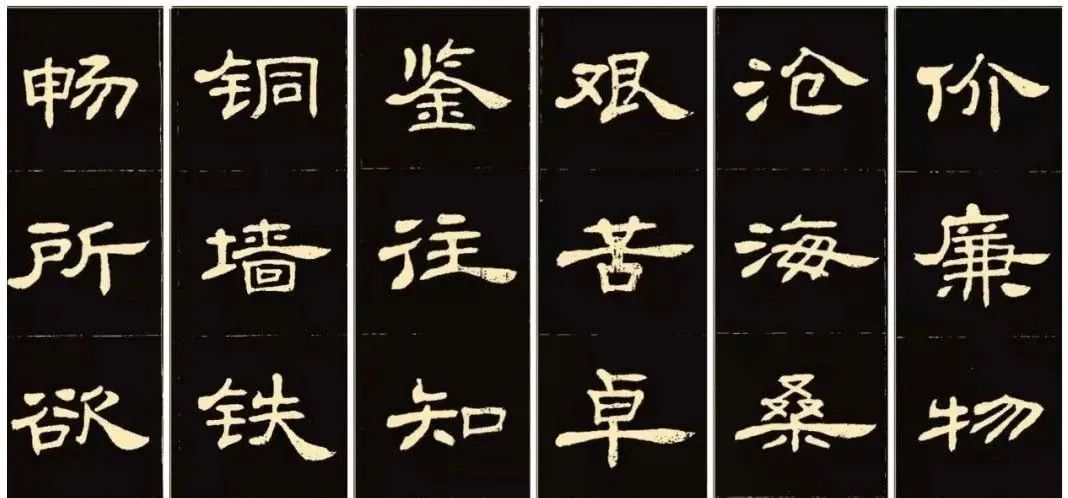 价廉物
沧海桑
艰苦卓
鉴往知
铜墙铁
畅所欲